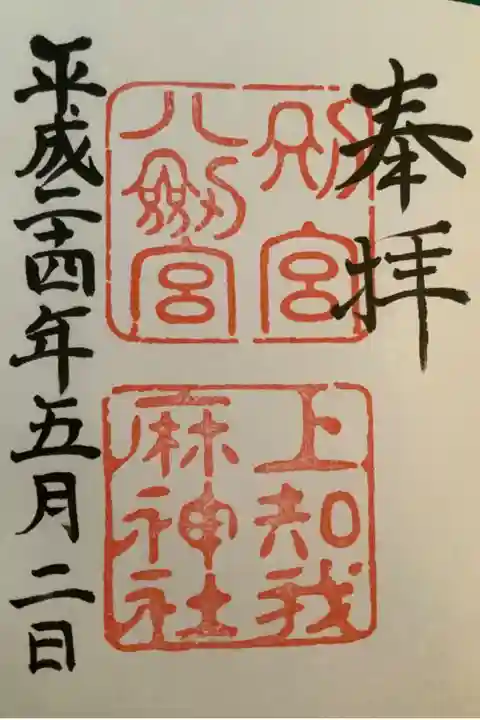 奉拝
別宮
八剱宮
上知我
麻神社
平成二十四年五月二日